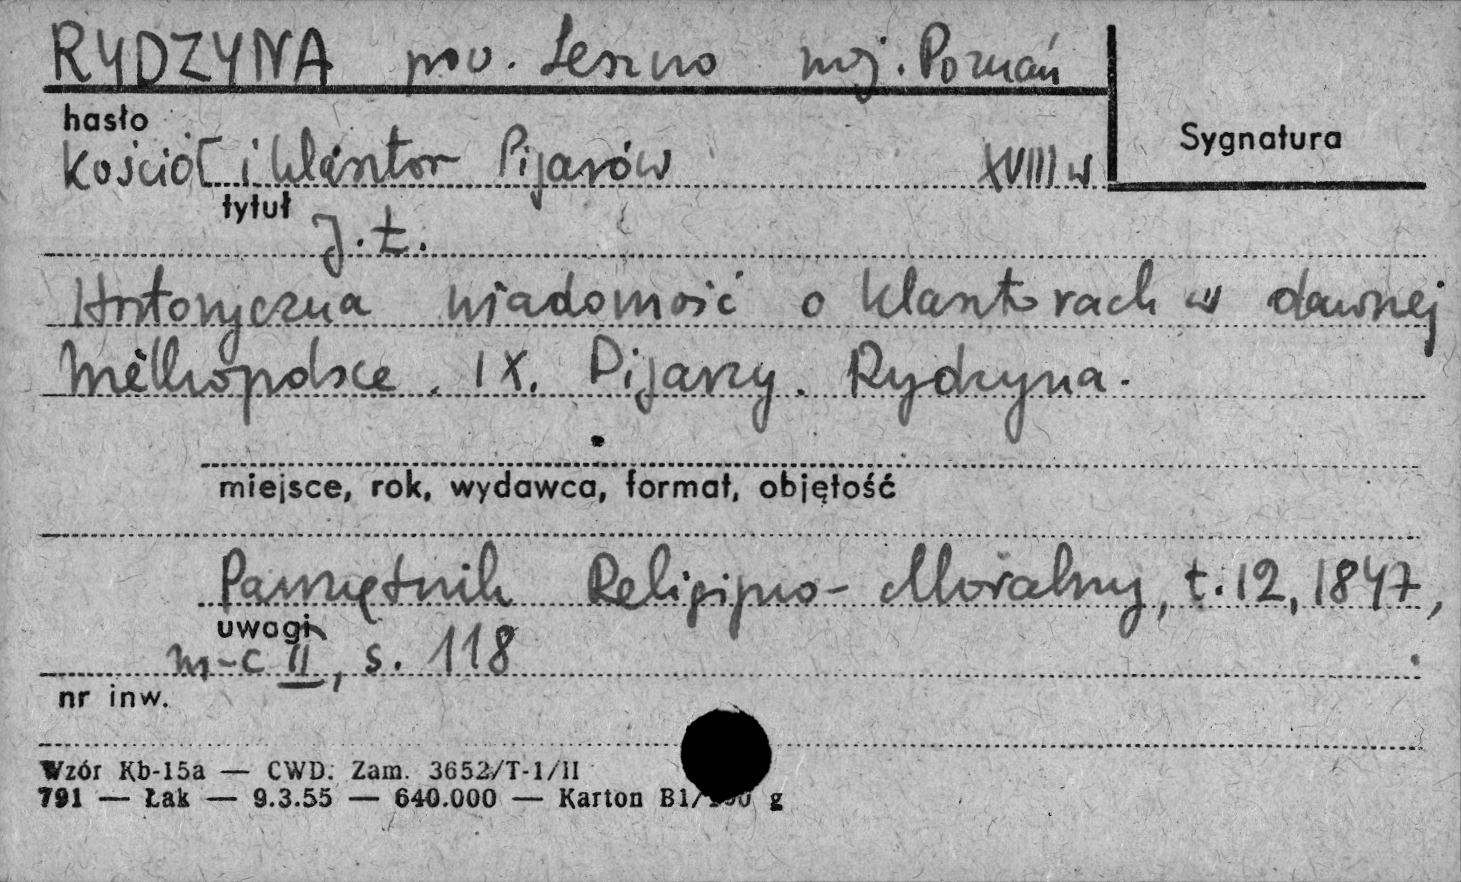 RYDZYNA pow. Leszno woj. Poznań
hasło
Sygnatura
Kościół i klasztor Pijarów XVIII w
tytuł
J. Ł.
Historyczna wiadomość o klasztorach w dawnej
Wielkopolsce. IX. Pijarzy. Rydzyna.
miejsce, rok, wydawca, format, objętość
Pamiętnik Religijno-Moralny, t. 12, 1847,
uwagi
m-c II, s. 118
nr inw.
Wzór Kb-15a — CWD. Zam. 3652/T-1/II
791 — Łak — 9.3.55 — 640.000 — Karton B1/ g